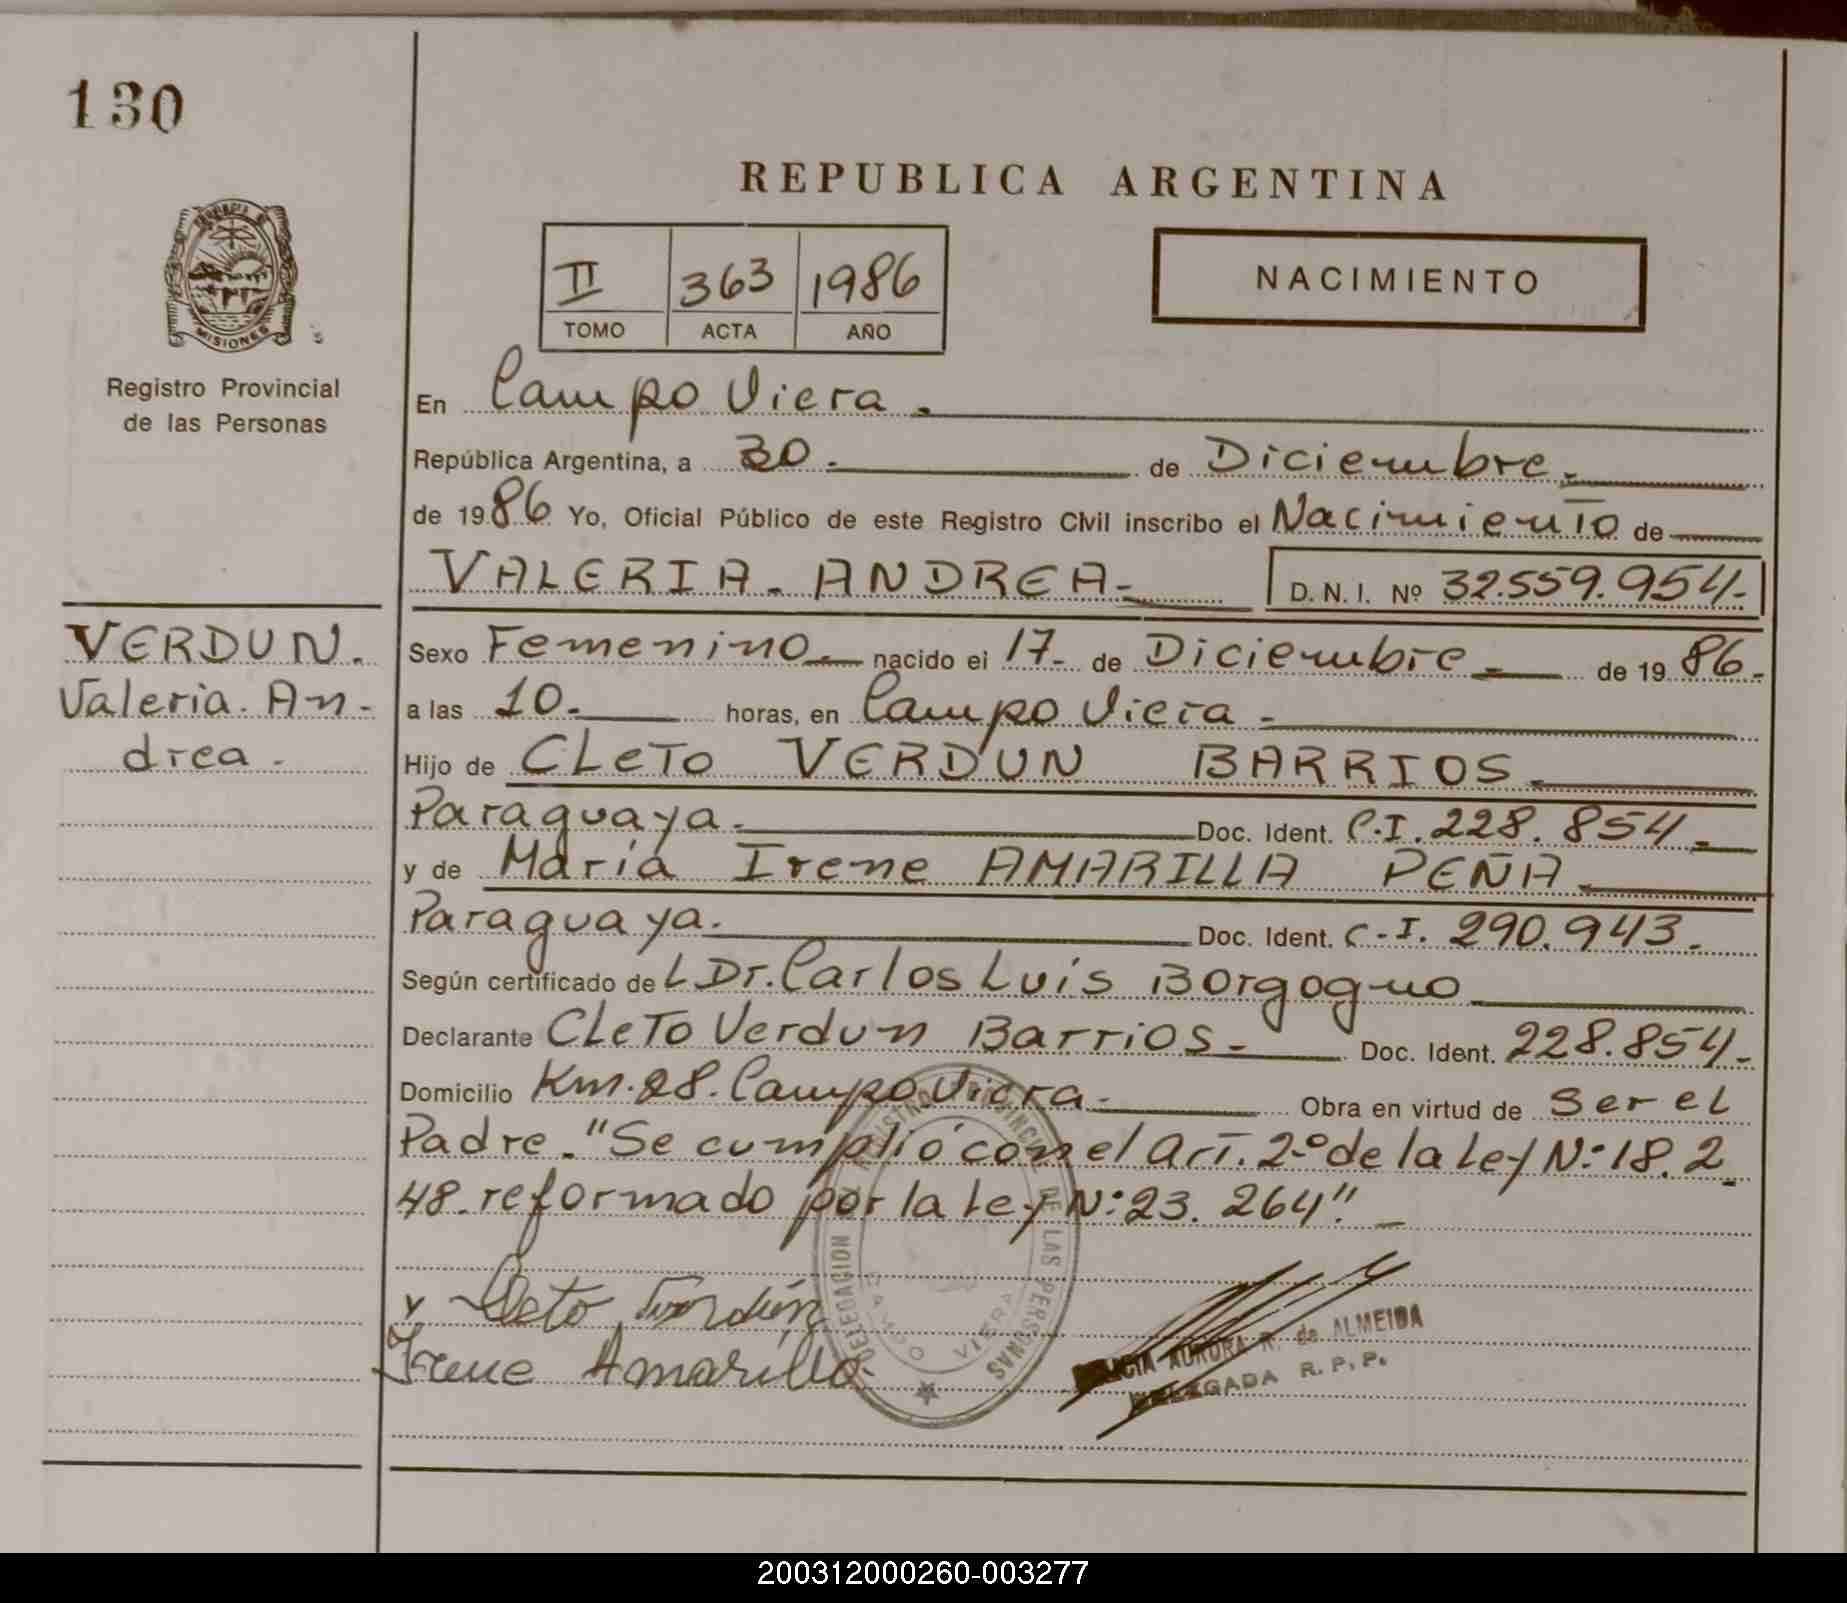 130
REPUBLICA ARGENTINA
PROVINCIA DE
MISIONES
Registro Provincial
de las Personas
II 363 1986
TOMO ACTA AÑO
NACIMIENTO
En Campo Viera.
República Argentina, a 30. de Diciembre.
de 1986 Yo, Oficial Público de este Registro Civil inscribo el Nacimiento de
VALERIA. ANDREA- D. N. I. Nº 32.559.954-
VERDUN.
Valeria. An-
drea.
Sexo Femenino nacido el 17. de Diciembre de 1986.
a las 10. horas, en Campo Viera.
Hijo de CLeTo VERDUN BARRIOS.
Paraguaya. Doc. Ident. C.I. 228.854.
y de María Irene AMARILLA PEÑA.
Paraguaya. Doc. Ident. C.I. 290.943.
Según certificado de L Dr. Carlos Luis Borgogno
Declarante CLeTo Verdun Barrios. Doc. Ident. 228.854.
Domicilio Km. 28. Campo Viera. Obra en virtud de Ser el
Padre. "Se cumplió con el Art. 2º de la Ley Nº: 18.2
48. reformado por la Ley Nº: 23.264".
y Cleto Verdún
Irene Amarilla
DELEGACION REGISTRO PROVINCIAL DE LAS PERSONAS
CAMPO VIERA
AURORA R. de ALMEIDA
DELEGADA R. P. P.
200312000260-003277